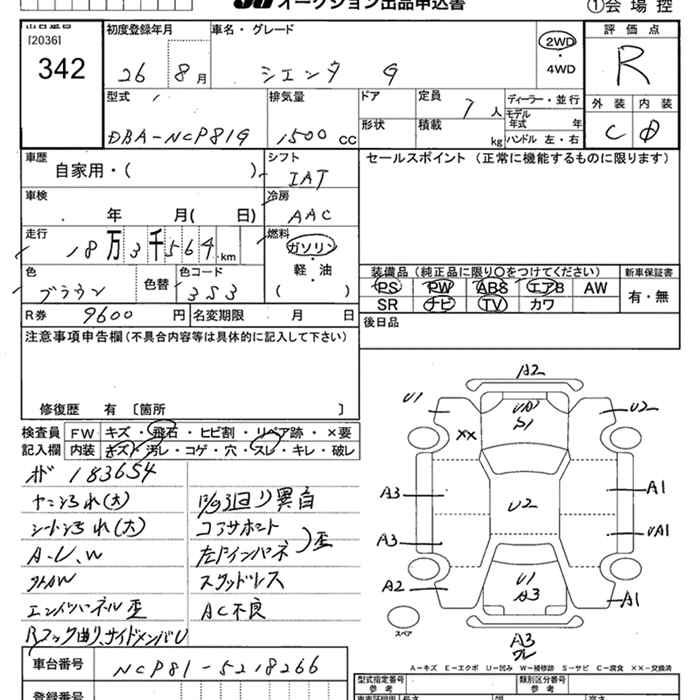 オークション出品申込書
①会場控
[2036]
342
初度登録年月
26 8月
車名・グレード
シエンタ G
2WD
・
4WD
評価点
R
外装 内装
C D
型式
DBA-NCP81G
排気量
1500 CC
ドア
形状
定員 7人
積載 kg
ディーラー・並行
モデル年式 年
ハンドル 左・右
車歴
自家用・( )
シフト
IAT
セールスポイント(正常に機能するものに限ります)
車検
年 月( 日)
冷房
AAC
走行
18万3千564km
燃料
ガソリン
軽・油
( )
色
ブラウン
色替
色コード
3S3
装備品(純正品に限り○をつけてください)
PS PW ABS エアB AW
SR ナビ TV カワ
新車保証書
有・無
R券 9600円
名変期限 月 日
後日品
注意事項申告欄(不具合内容等は具体的に記入して下さい)
修復歴 有 〔箇所 〕
検査員記入欄
FW キズ・飛石・ヒビ割・リペア跡・×要
内装 キズ・汚レ・コゲ・穴・スレ・キレ・破レ
183654
(大)
シート
(大)
A-U、W
コアサポート
左Fインパネ 歪
スタッドレス
エンドパネル歪
AC不良
Rフック曲り、サイドメンバU
A2
U1
U2
S1
XX
A3
U2
A1
A3
UA1
A2
U1
A3
A1
A3
スペア
A=キズ E=エクボ U=凹み W=補修跡 S=サビ C=腐食 XX=交換済
車台番号
NCP81-5218266
登録番号
型式指定番号
参考
類別区分番号
参考